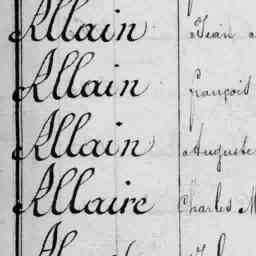 Allain Jean
Allain François
Allain Auguste
Allaire Charles M